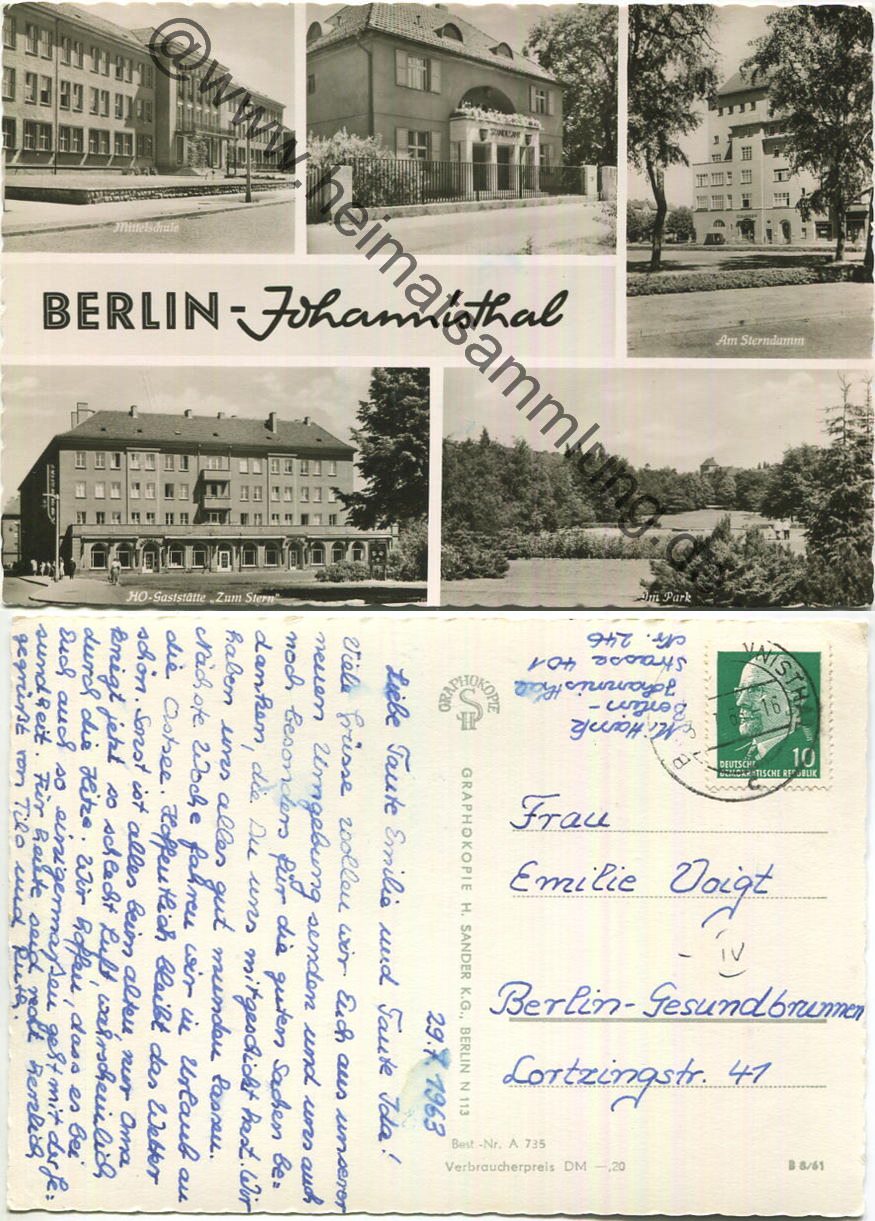 Mittelschule
STANDESAMT
Am Sterndamm
BERLIN-Johannisthal
HO-Gaststätte „Zum Stern"
Im Park
@www.heimatsammlung.de
29.7.1963
Liebe Tante Emilie und Tante Ida!
Viele Grüsse wollen wir Euch aus unserer
neuen Umgebung senden und uns auch
noch besonders für die guten Sachen be=
danken, die Du uns mitgeschickt hast. Wir
haben uns alles gut munden lassen.
Nächste Woche fahren wir in Urlaub an
die Ostsee. Hoffentlich bleibt das Wetter
schön. Sonst ist alles beim alten, nur Oma
kriegt jetzt so schlecht Luft, wahrscheinlich
durch die Hitze. Wir hoffen, dass es bei
Euch auch so einigermaßen geht mit der Ge=
sundheit. Für heute seid recht herzlich
gegrüsst von Tilo und Ruth.
GRAPHOKOPIE
HS
GRAPHOKOPIE H. SANDER K.G., BERLIN N 113
Best-Nr. A 735
Verbraucherpreis DM —,20
Berlin-
Johannisthal
Strasse 401
Nr. 246
10
DEUTSCHE
DEMOKRATISCHE REPUBLIK
Frau
Emilie Voigt
- IV
Berlin-Gesundbrunnen
Lortzingstr. 41
B 8/61